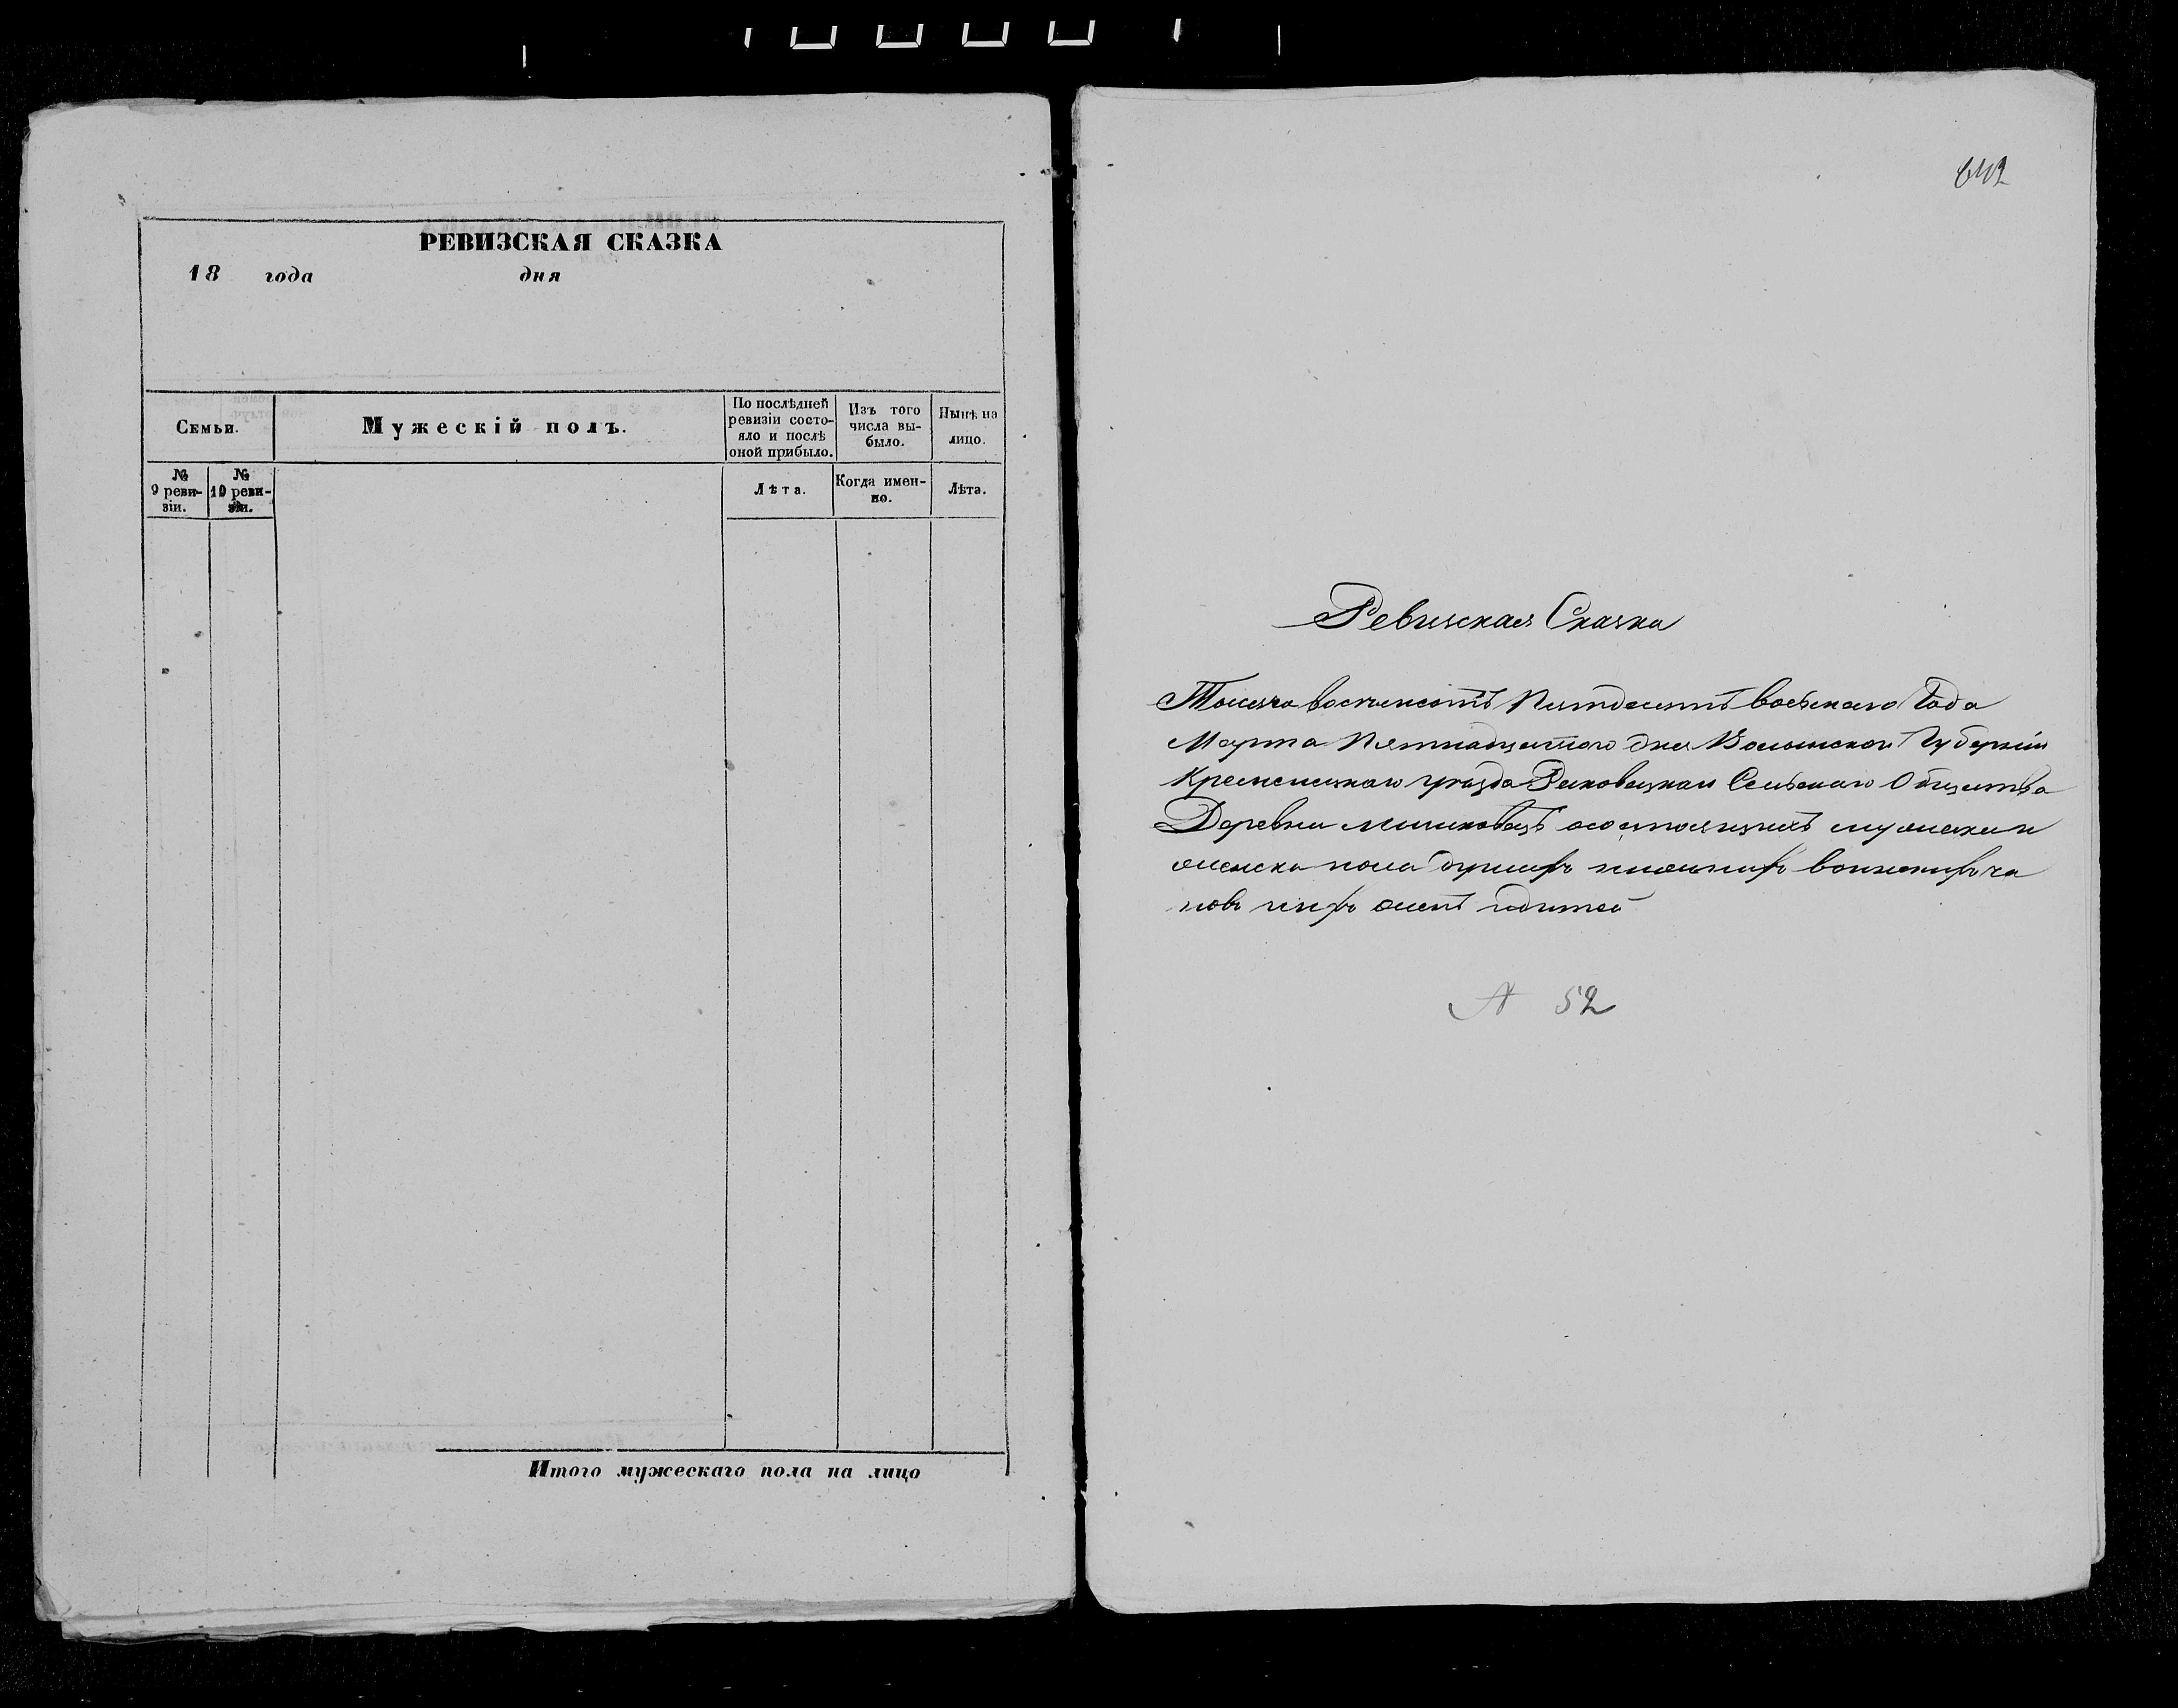 РЕВИЗСКАЯ СКАЗКА
18 года дня
Семьи.
Мужескій полъ.
По послѣдней
ревизіи состо-
яло и послѣ
оной прибыло.
Изъ того
числа вы-
было.
Нынѣ на
лицо.
№
9 реви-
зіи.
№
10 реви-
зіи.
Лѣта.
Когда имен-
но.
Лѣта.
Итого мужескаго пола на лицо
642
Ревизская Сказка
Тысяча восемсотъ Пятдесятъ восьмаго Года
Марта Пятнадцатого дня Волынской Губерніи
Кременецкаго уѣзда Сельскаго Общества
Деревни
пола
А 52